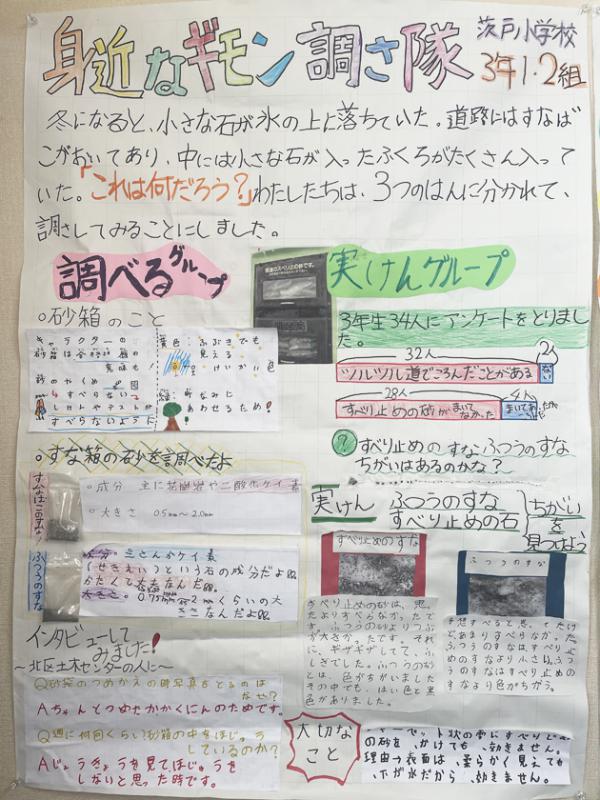 身近なギモン調さ隊
茨戸小学校
3年1・2組
冬になると、小さな石が氷の上に落ちていた。道路にはすなば
こがおいてあり、中には小さな石が入ったふくろがたくさん入って
いた。「これは何だろう？」わたしたちは、3つのはんに分かれて、
調さしてみることにしました。
調べるグループ
○砂箱のこと
キャラクターの
砂箱は
意味も!
砂のやくめ
すべらない
すべらないように
黄色:ふぶきでも
見える
けいかい色
緑
なみに
あわせるため!
○すな箱の砂を調べたよ
すなばこのすな
○成分 主に花崗岩や二酸化ケイ素
○大きさ 0.5mm〜2.0mm
ふつうのすな
成分 二さんかケイ素
(せきえい)という石の成分だよ
かたくて大きなんだ
大きさ
くらいの大
きさなんだよ
インタビューして
みました!
〜北区土木センターの人に〜
Q砂袋のつめかえの時写真をとるのは
なぜ?
Aちゃんとつめたかかくにんのためです。
Q週に何回くらい砂箱の中をほじゅう
しているのか?
Aじょうきょうを見てほじゅうを
しないと思った時です。
実けんグループ
3年生34人にアンケートをとりまし
た。
32人
2人
ツルツル道でころんだことがある
ない
28人
4人
すべり止めの砂がまいてなかった
?すべり止めのすなふつうのすな
ちがいはあるのかな?
実けん
ふつうのすな
すべり止めの石
ちがい
を
見つけよう
すべり止めのすな
すべり止めの砂は、思っ
たよりすべらなかったで
す。ふつうの砂よりつぶ
が大きかったです。それ
に、ギザギザしてて、ふ
しぎでした。ふつうの砂と
は、色がちがいました
その中でも、はい色と黒
色がありました。
ふつうのすな
予想すべると思ってたけ
どあまりすべらなかった。
ふつうのすなはすべり止
めのすなより小さい。ふつ
うのすなはすべり止めの
すなより色がちがう。
大切な
こと
状の雪にすべりどめ
の砂を、かけても、効きません。
理由→表面は、柔らかく見えても
下が氷だから、効きません。